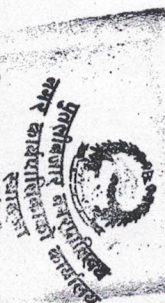 पुतलीबजार नगरपालिका
नगर कार्यपालिकाको कार्यालय
स्याङ्जा